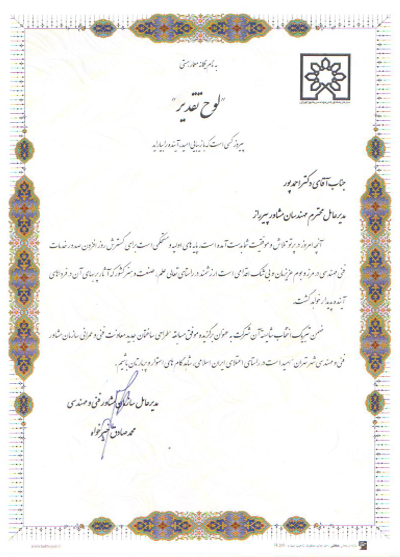 به نام یگانه معمار هستی
"لوح تقدیر"
پیروز کسی است که با زیبایی امید، آینده را بیاراید
جناب آقای دکتر احمدپور
مدیرعامل محترم مهندسان مشاور پیرراز
آنچه امروز در پرتو تلاش و موفقیت شما بدست آمده است، پایه های اولیه و مستحکمی است برای گسترش روز افزون صدور خدمات
فنی مهندسی در مرز و بوم عزیزمان و بی شک اقدامی است ارزشمند در راستای تعالی علم، صنعت و هنر کشور که آثار پربهای آن در فرداهای
آینده پدیدار خواهد گشت.
ضمن تبریک انتخاب شایسته آن شرکت به عنوان برگزیده و موفق مسابقه طراحی ساختمان جدید معاونت فنی و عمرانی سازمان مشاور
فنی و مهندسی شهر تهران، امید است در راستای اعتلای ایران اسلامی، شاهد گام های استوار و پربارتان باشیم.
مدیرعامل سازمان مشاور فنی و مهندسی
محمدصادق خیرخواه